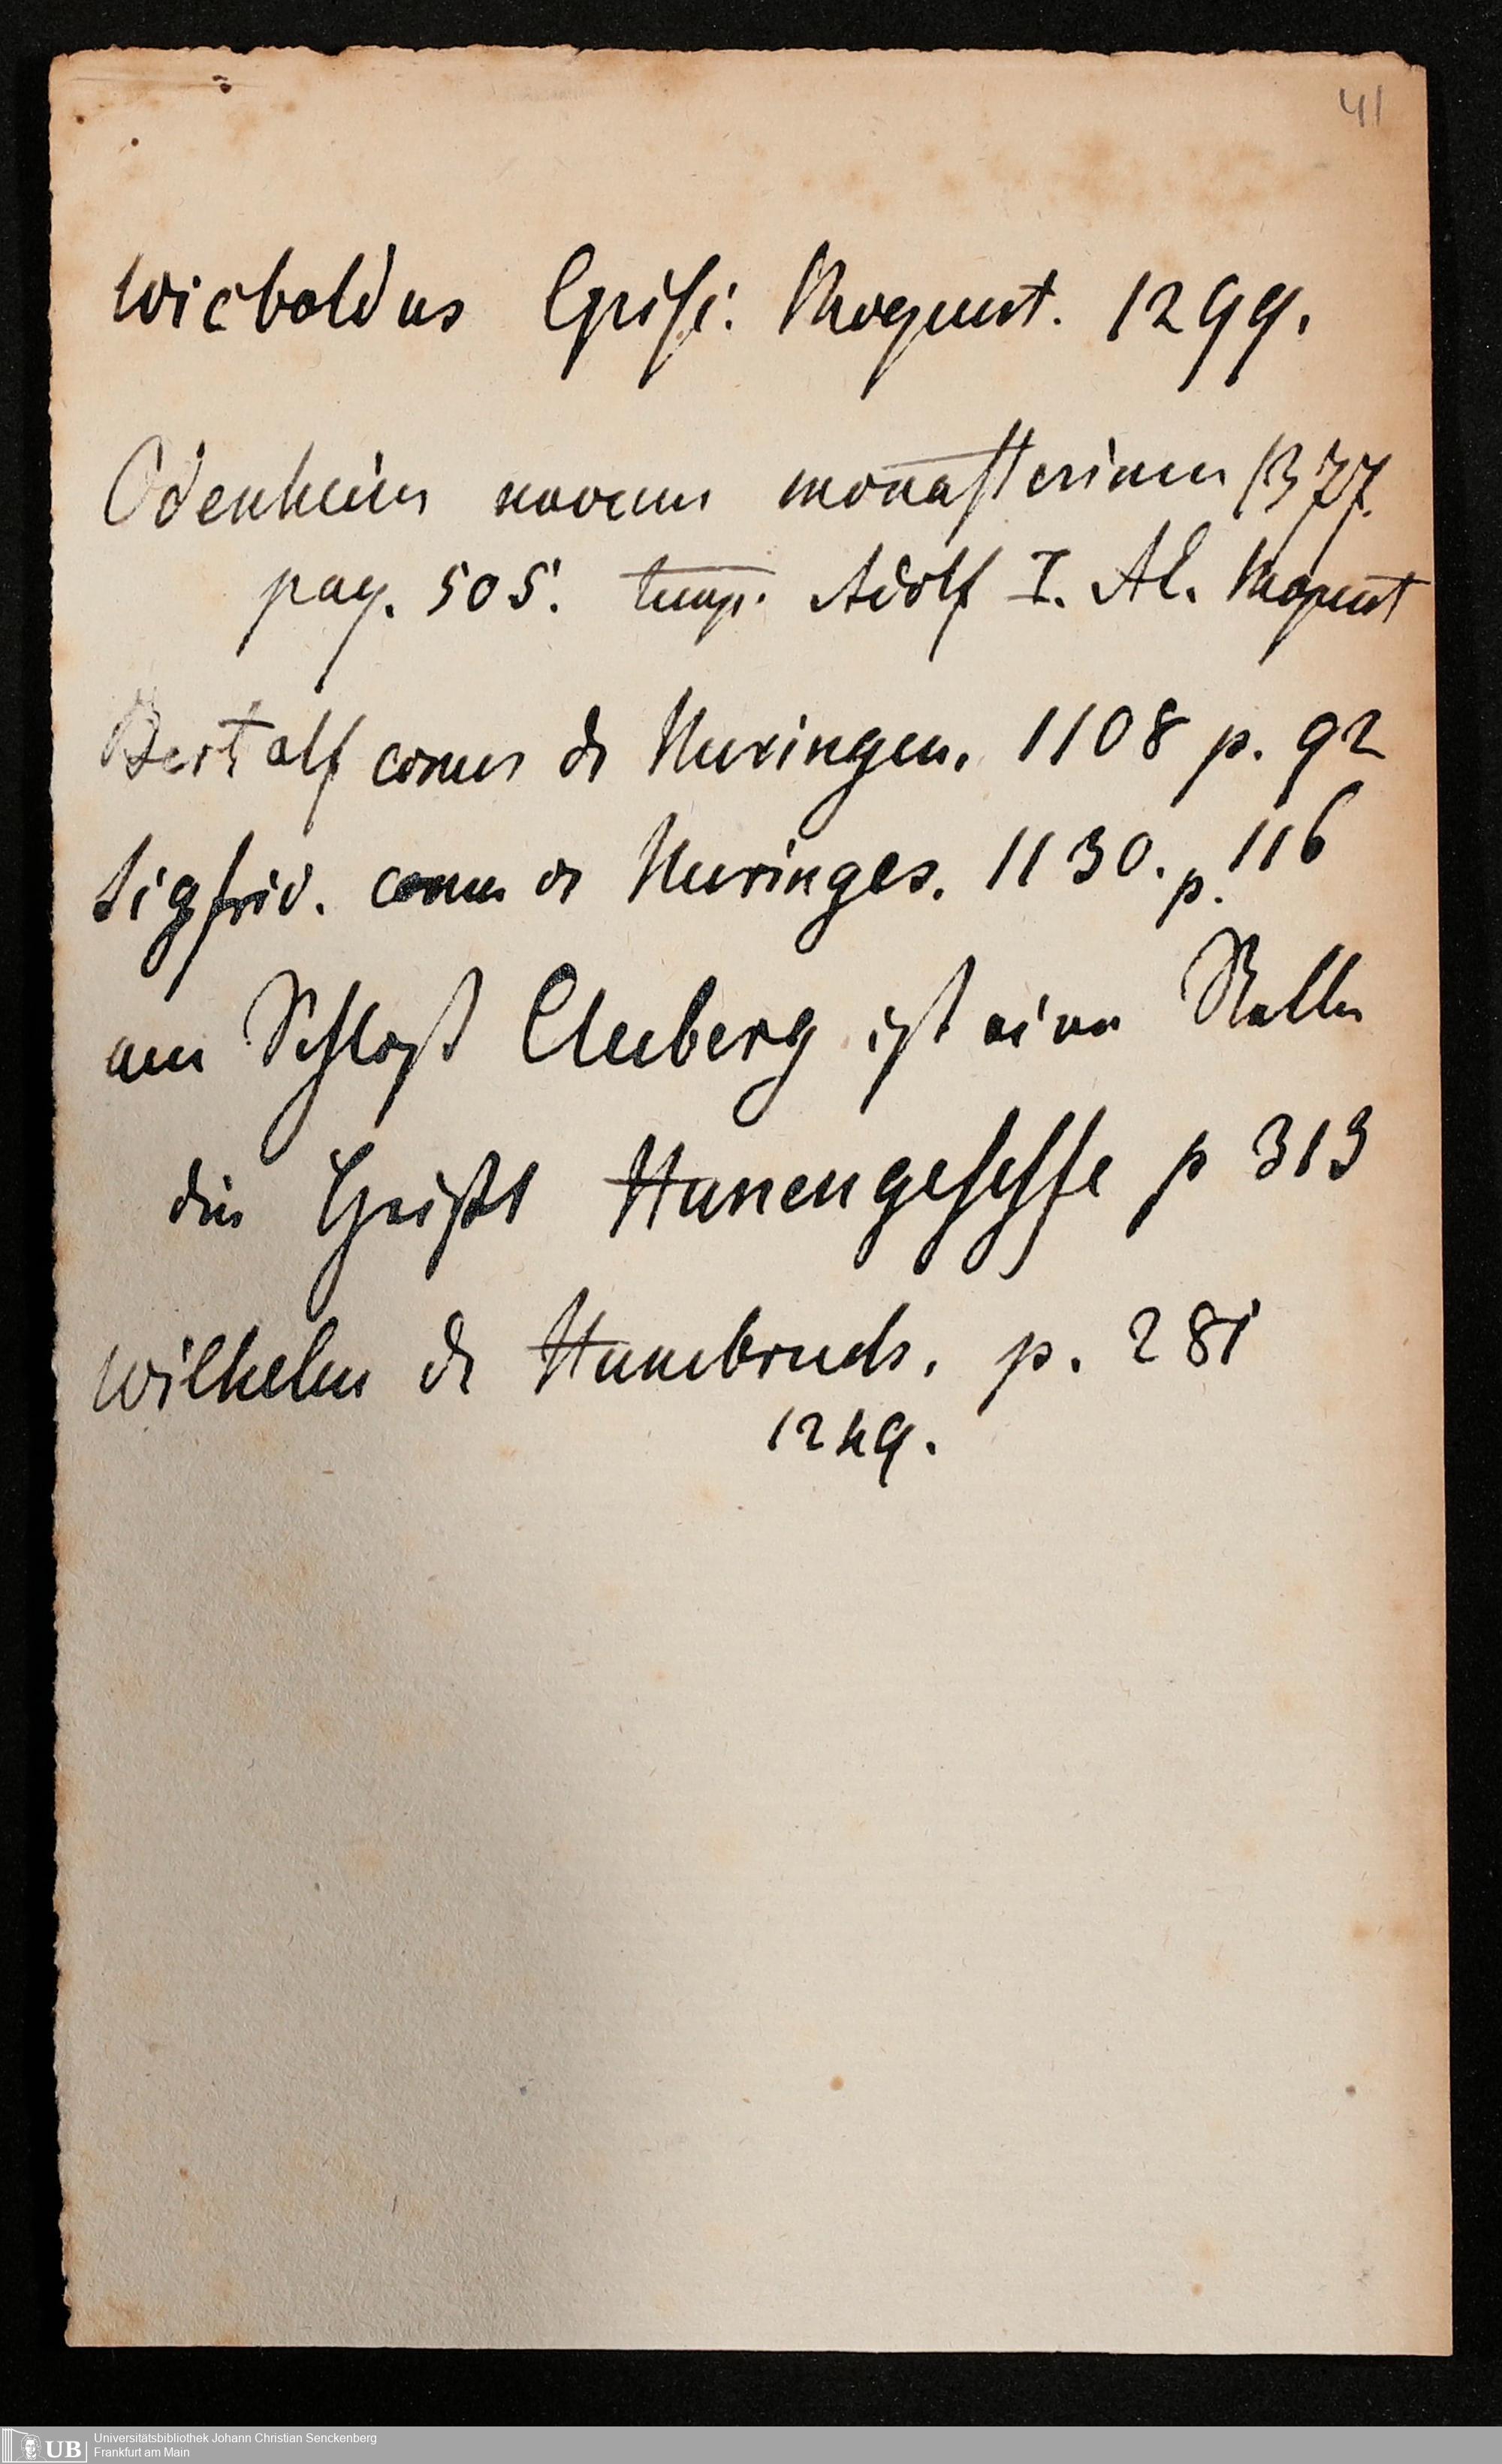 41
Wicboldus Episc. Mogunt. 1299.
Odenheim novum monasterium 1377.
pag. 505. temp. Adolf I. AE. Mogunt
Bertolf comes de Nuringen. 1108 p. 92
Sigfrid. comes de Nuringes. 1130. p. 116
am Schloß Cleeberg ist eine Stelle
die heißt Hunengesesse p 313
Wilhelm de p. 281
1249.
UB Universitätsbibliothek Johann Christian Senckenberg
Frankfurt am Main